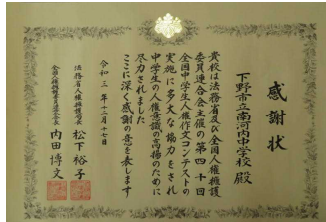 感謝状
下野市立南河内中学校 殿
貴校は法務省及び全国人権擁護
委員連合会主催の第四十回
全国中学生人権作文コンテストの
実施に多大な協力をされ
中学生の人権意識の高揚のために
尽力されました
ここに深く感謝の意を表します
令和三年十二月十七日
法務省人権擁護局長 松下裕子
全国人権擁護委員連合会長 内田博文